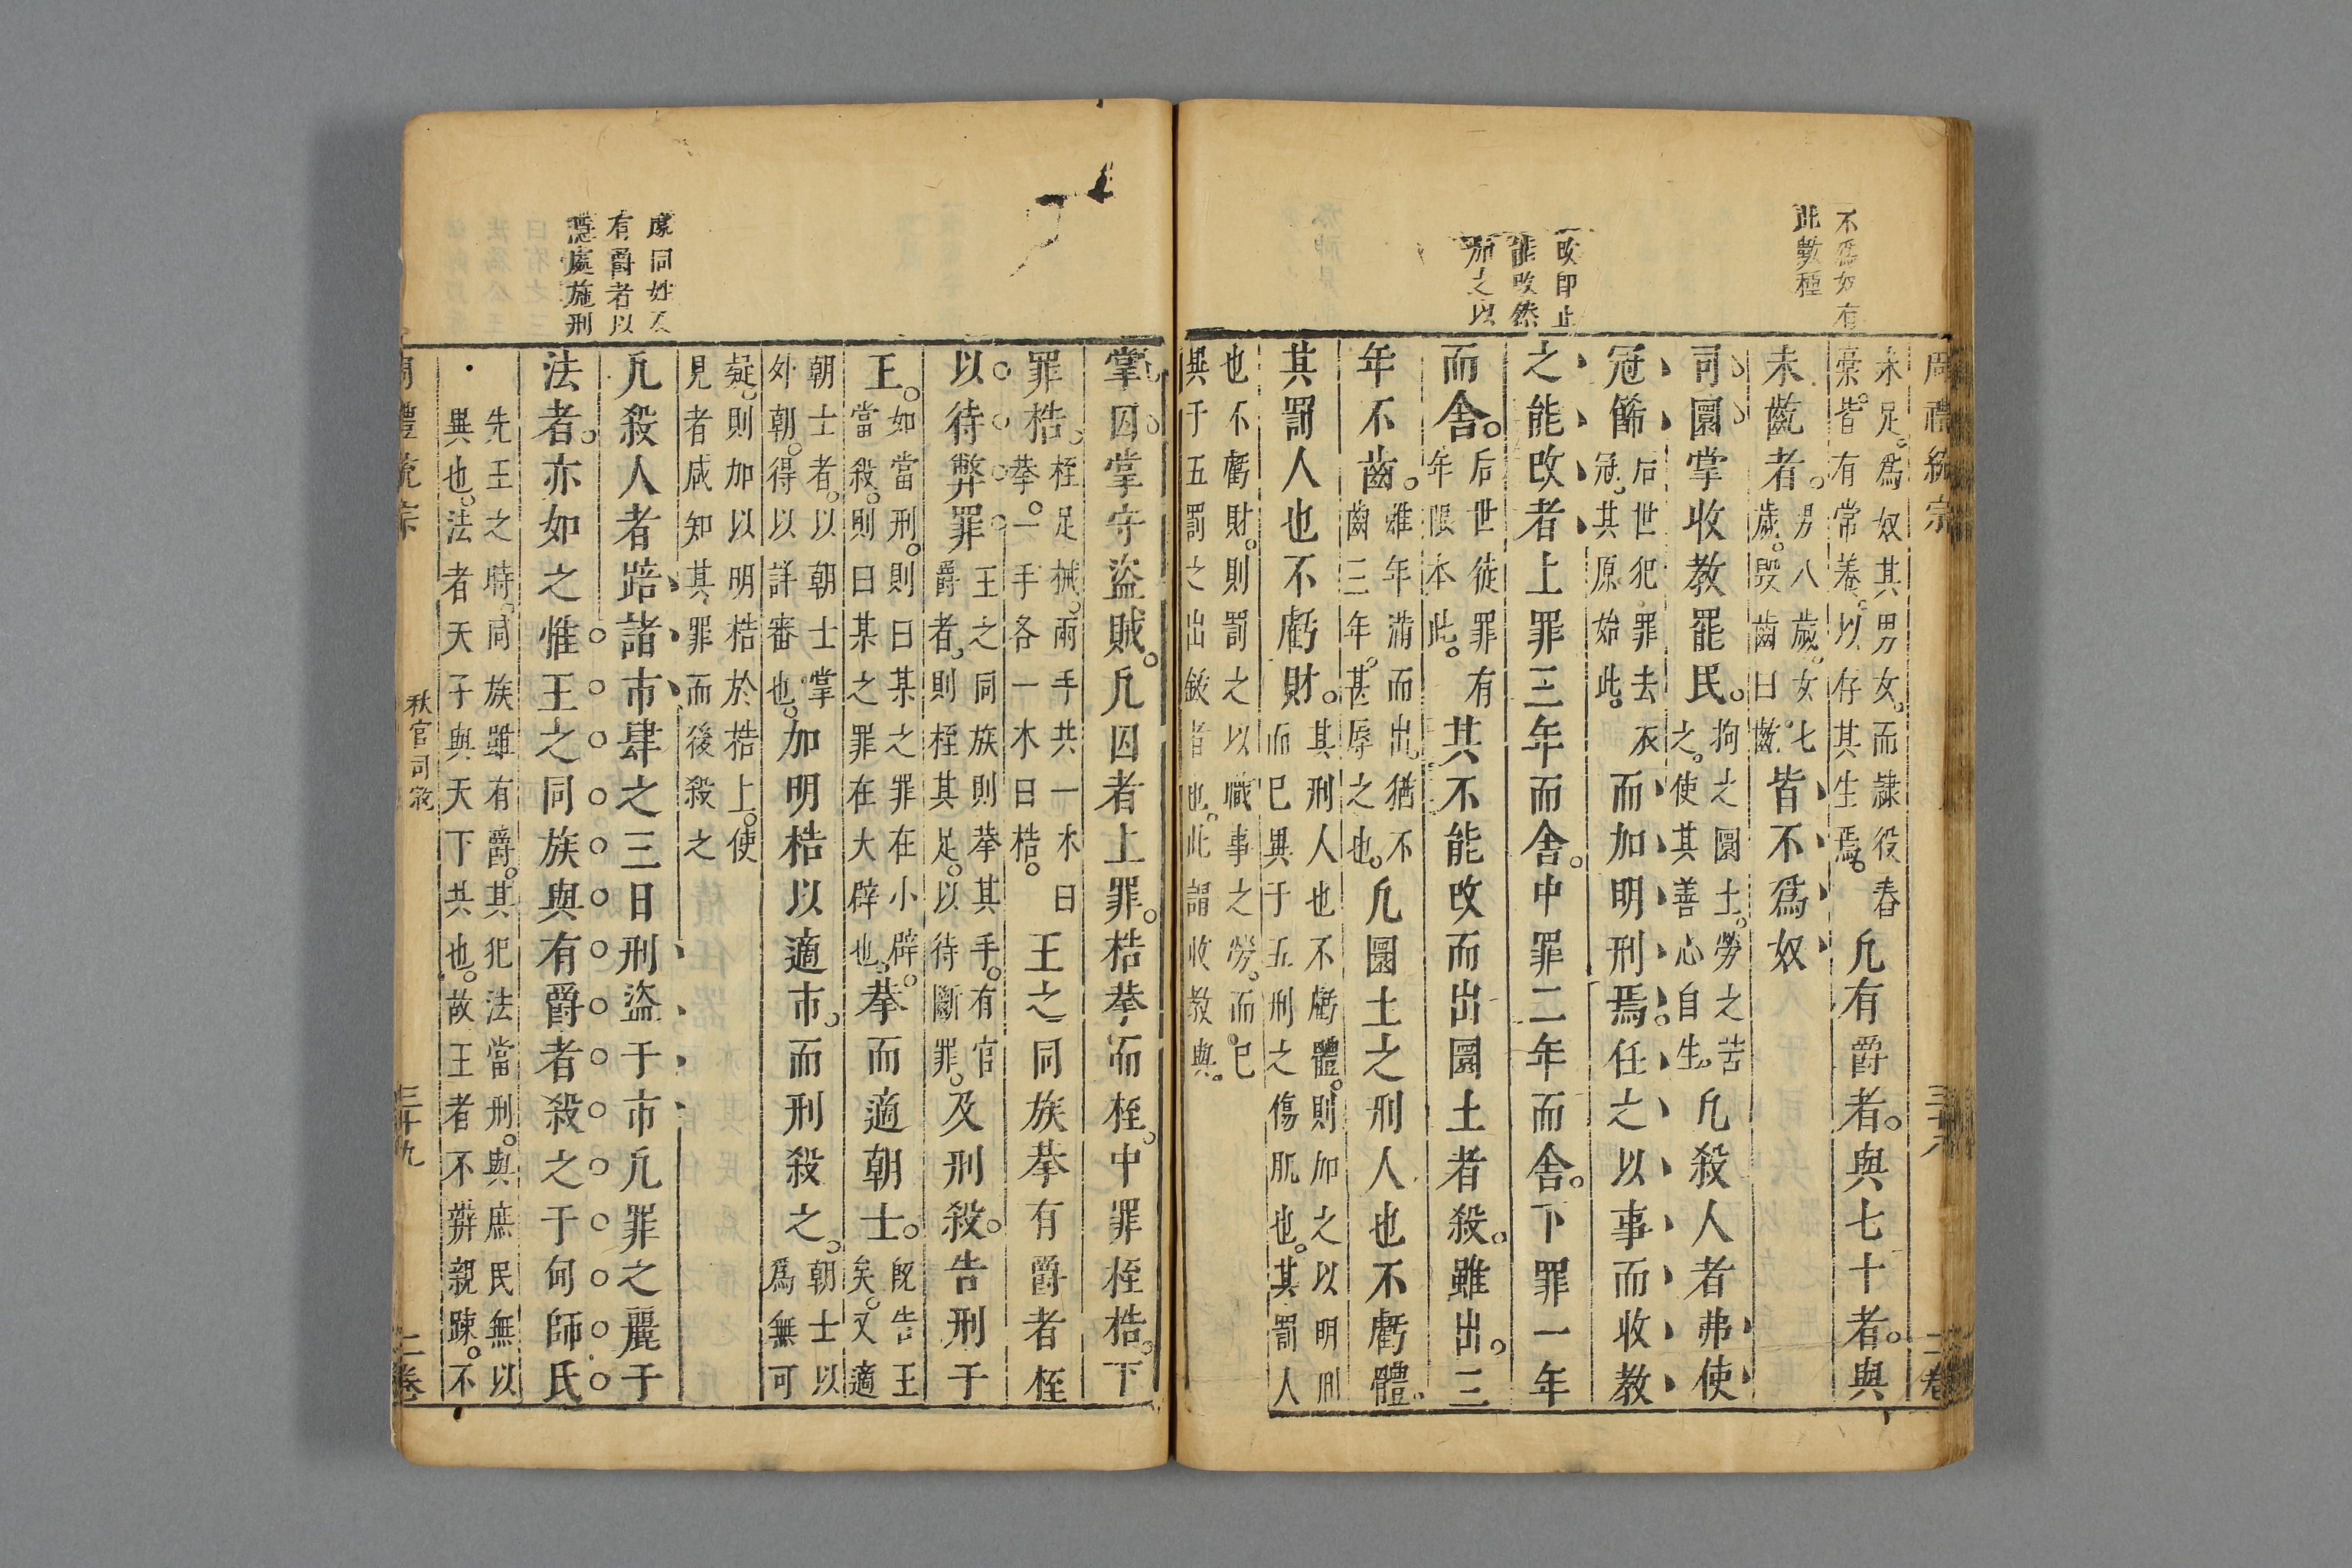 周禮統宗 三十八 二卷
不爲奴有
此數種
改卽止
能改然
加之以
未足。爲奴其男女。而隷役舂稾。皆有常養。以存其生焉。凡有爵者。與七十者。與
未齔者。男八歲。女七歲。毀齒曰齔。皆不爲奴
司圜掌收教罷民。拘之圜土。勞之苦之。使其善心自生。凡殺人者弗使
冠飾后世犯罪去衣冠。其原始此。而加明刑焉。任之以事而收教
之能改者上罪三年而舍。中罪二年而舍。下罪一年
而舍。后世徒罪有年限本此。其不能改而出圜土者殺。雖出。三
年不齒。雖年滿而出。猶不齒三年。甚辱之也。凡圜土之刑人也不虧體。
其罰人也不虧財。其刑人也不虧體。則加之以明刑而已異于五刑之傷肌也。其罰人
也不虧財。則罰之以職事之勞。而已異于五罰之出鍰者也。此謂收教與。
處同姓及
有爵者以
隱處施刑
掌囚掌守盜賊。凡囚者上罪。梏拲而桎。中罪桎梏。下
罪梏。桎足械。兩手共一木曰拲。一手各一木曰梏。王之同族拲有爵者桎
以待弊罪王之同族則拲其手。有官爵者。則桎其足。以待斷罪。及刑殺。告刑于
王。如當刑。則曰某之罪在小辟。當殺。則曰某之罪在大辟也。拲而適朝士。旣告王矣。又適
朝士者。以朝士掌外朝。得以詳審也。加明梏以適市。而刑殺之。朝士以爲無可
疑。則加以明梏於梏上。使見者咸知其罪而後殺之
凡殺人者踣諸市肆之三日刑盜于市凡罪之麗于
法者。亦如之惟王之同族與有爵者殺之于甸師氏
先王之時。同族雖有爵。其犯法當刑。與庶民無以異也。法者天子與天下共也。故王者不辨親疎。不
周禮統宗 秋官司寇 三十九 二卷